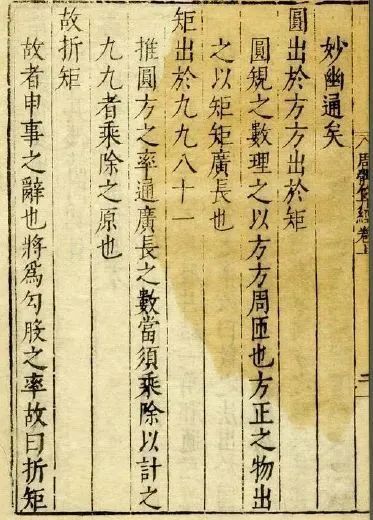 周髀算經卷上
二
妙幽通矣
圓出於方方出於矩
圓規之數理之以方方周匝也方正之物出
之以矩矩廣長也
矩出於九九八十一
推圓方之率通廣長之數當須乘除以計之
九九者乘除之原也
故折矩
故者申事之辭也將為勾股之率故曰折矩